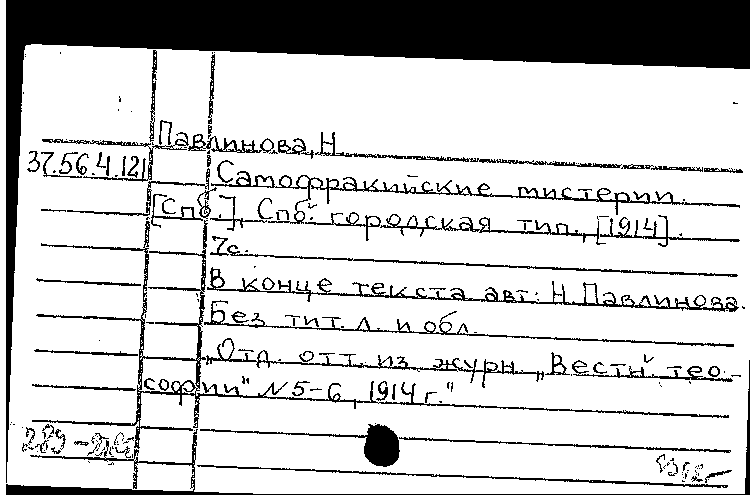 Павлинова, Н.
37.56.4.121
Самофракийские мистерии.
[Спб.], Спб. городская тип., [1914].
7с.
В конце текста авт.: Н. Павлинова.
Без тит. л. и обл.
„Отд. отт. из журн. „Вестн. тео-
софии" N 5-6, 1914 г."